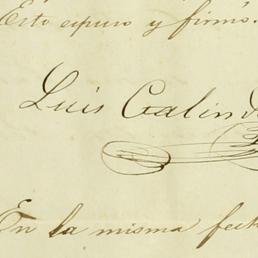 Esto espuso y firmó.
Luis Galindo
En la misma fech